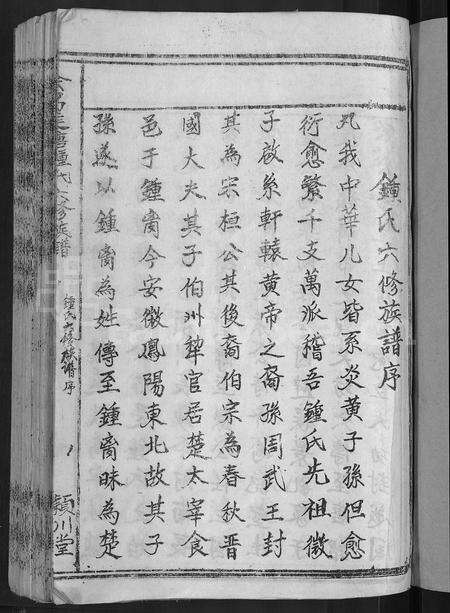 鍾氏六修族譜序
凡我中華儿女皆系炎黄子孫但愈
衍愈繁千支萬派稽吾鍾氏先祖微
子啟系軒轅黄帝之裔孫周武王封
其為宋桓公其後裔伯宗為春秋晋
國大夫其子伯州犂官居楚太宰食
邑于鍾离今安徽鳳陽東北故其子
孫遂以鍾离為姓傳至鍾离昧為楚
鍾氏六修族譜
鍾氏六修族譜序
潁川堂